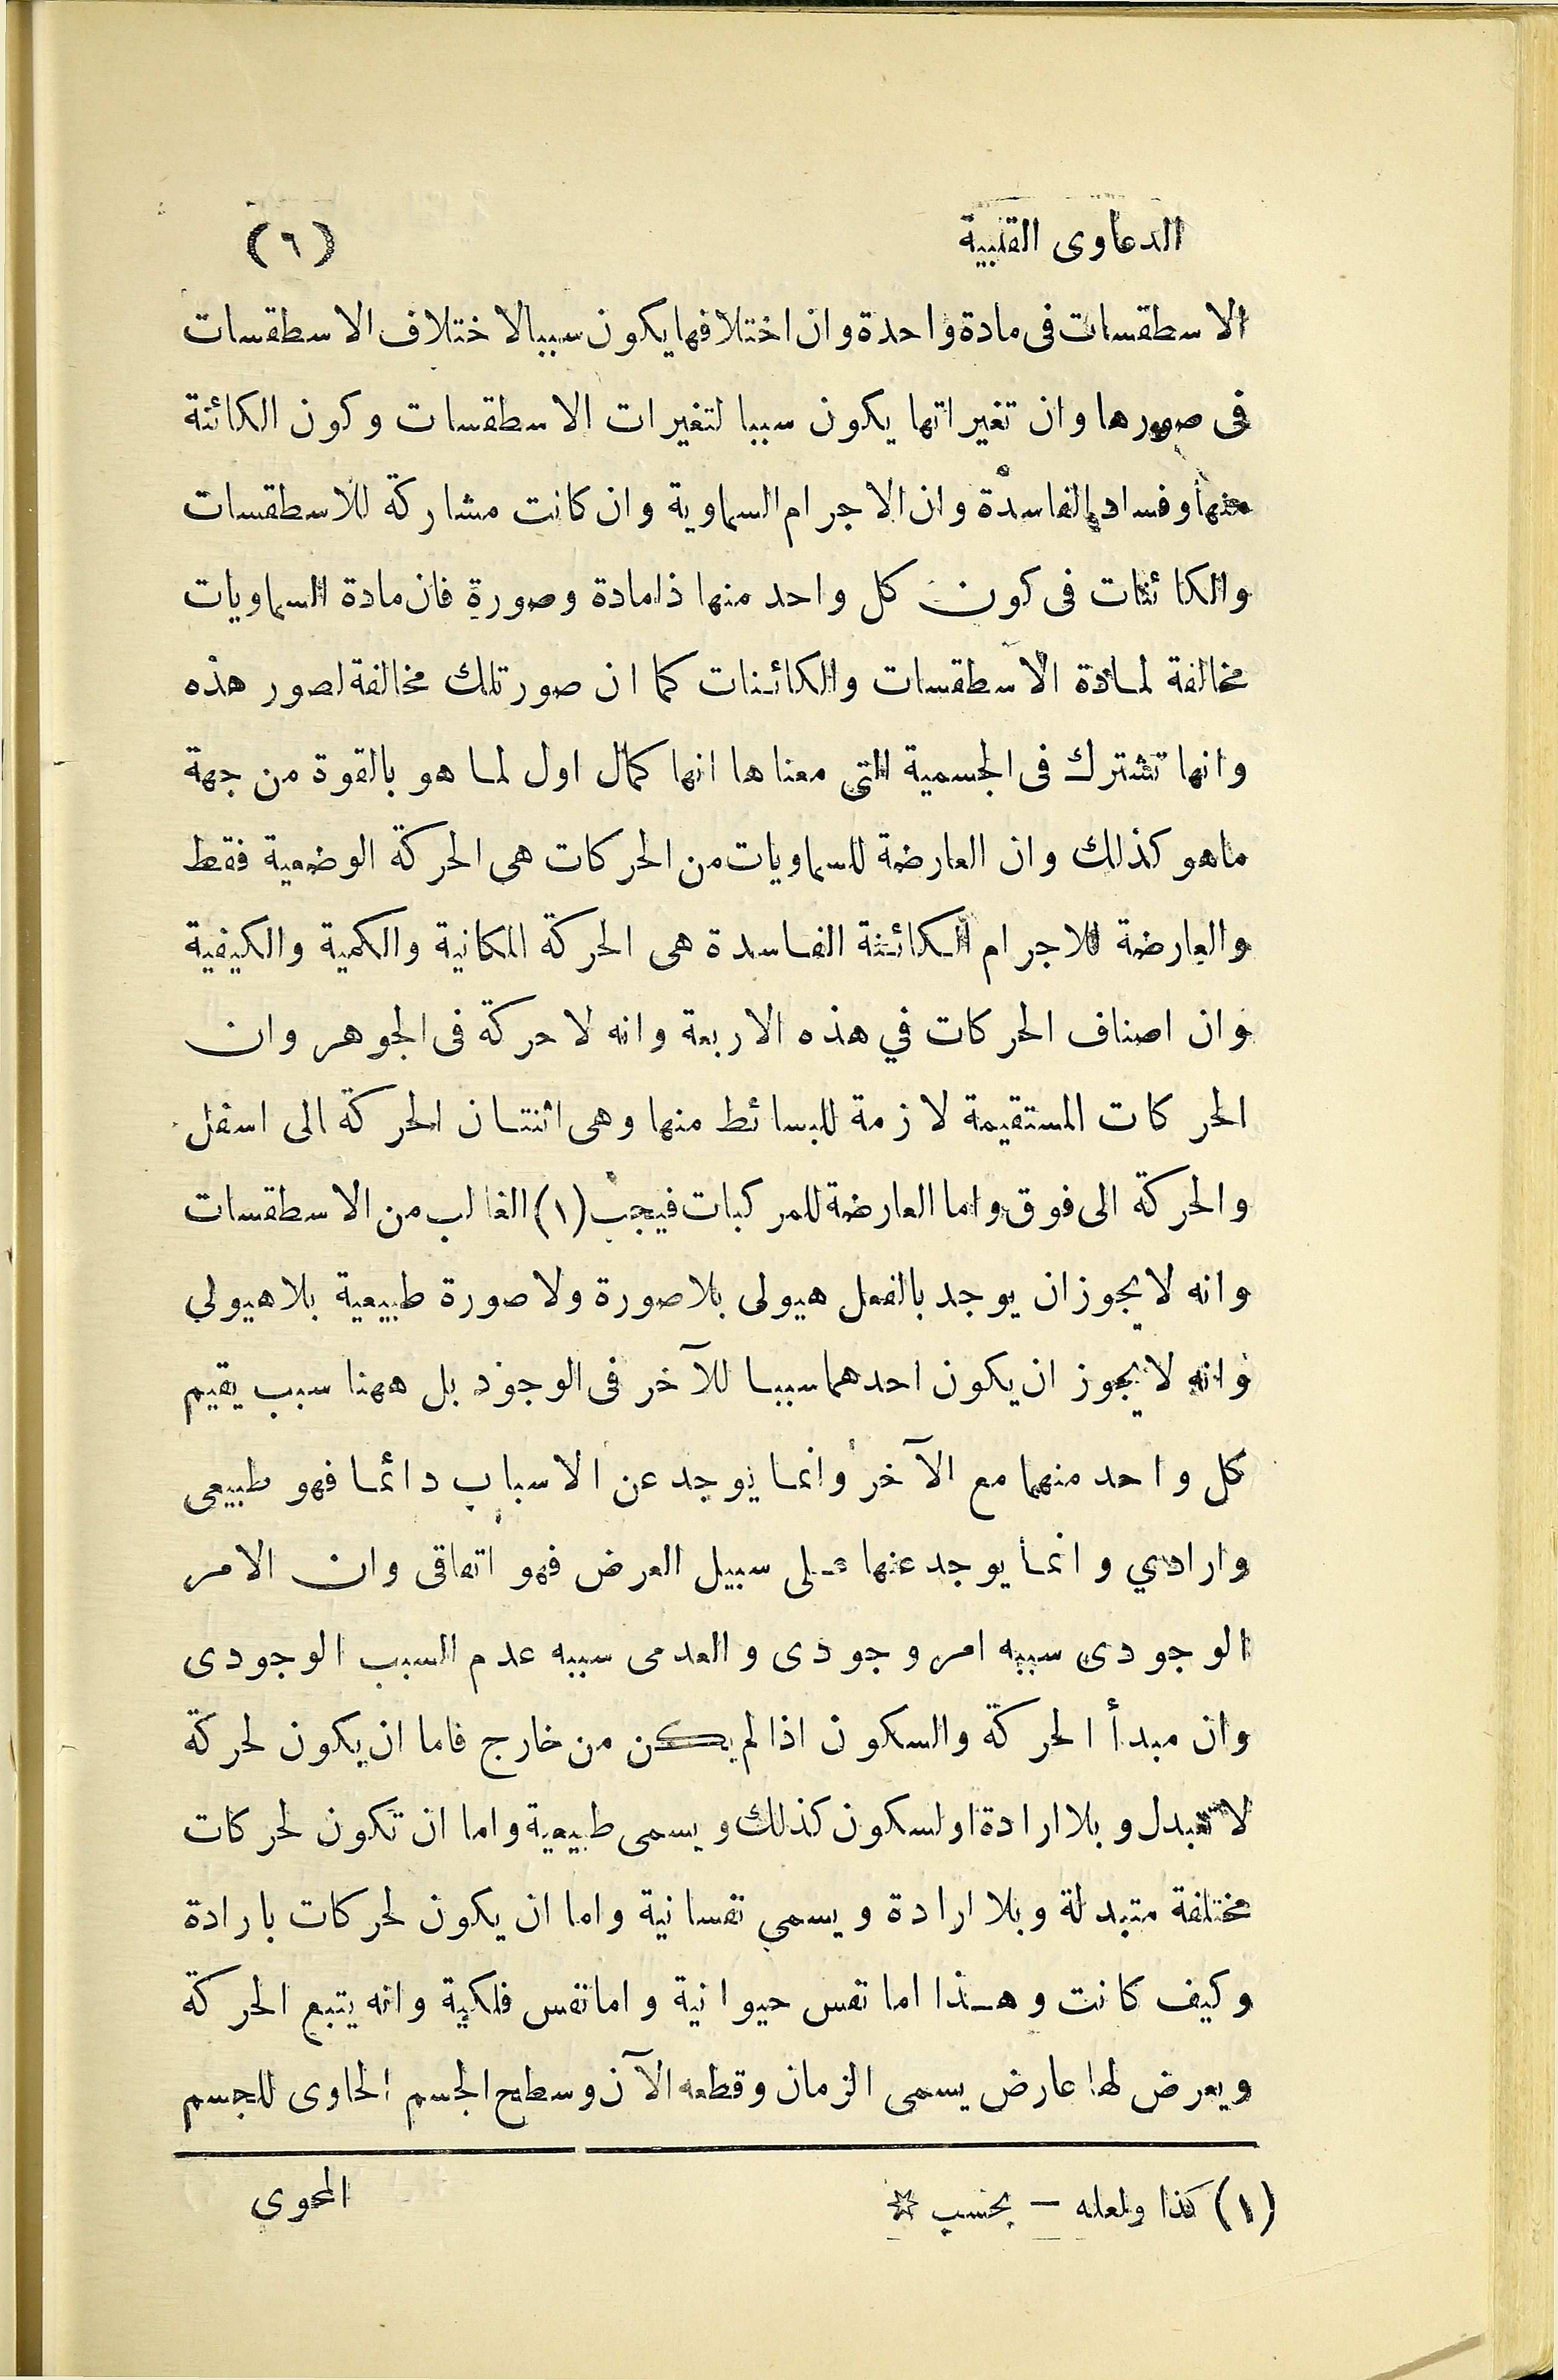 الدعاوى القلبية
(٦)
الاسطقسات فى مادة واحدة وان اختلافها يكون سببا لاختلاف الاسطقسات
فى صورها وان تغيراتها يكون سببا لتغيرات الاسطقسات وكون الكائنة
منها وفساد الفاسدة وان الاجرام السماوية وان كانت مشاركة للاسطقسات
والكائنات فى كون كل واحد منها ذا مادة وصورة فان مادة السماويات
مخالفة لمادة الاسطقسات والكائنات كما ان صور تلك مخالفة لصور هذه
وانها تشترك فى الجسمية التى معناها انها كمال اول لما هو بالقوة من جهة
ما هو كذلك وان العارضة للسماويات من الحركات هى الحركة الوضعية فقط
والعارضة للاجرام الكائنة الفاسدة هى الحركة المكانية والكمية والكيفية
وان اصناف الحركات في هذه الاربعة وانه لا حركة فى الجوهر وان
الحركات المستقيمة لازمة للبسائط منها وهى اثنتان الحركة الى اسفل
والحركة الى فوق واما العارضة للمركبات فيجب (١) الغالب من الاسطقسات
وانه لا يجوز ان يوجد بالفعل هيولى بلا صورة ولا صورة طبيعية بلا هيولي
وانه لا يجوز ان يكون احدهما سببا للآخر فى الوجود بل ههنا سبب يقيم
كل واحد منهما مع الآخر وانما يوجد عن الاسباب دائما فهو طبيعى
وارادي وانما يوجد عنها على سبيل العرض فهو اتفاقى وان الامر
الوجودى سببه امر وجودى والعدمى سببه عدم السبب الوجودى
وان مبدأ الحركة والسكون اذا لم يكن من خارج فاما ان يكون لحركة
لا تتبدل وبلا ارادة او لسكون كذلك ويسمى طبيعية واما ان تكون لحركات
مختلفة متبدلة وبلا ارادة ويسمى نفسانية واما ان يكون لحركات بارادة
وكيف كانت وهذا اما نفس حيوانية واما نفس فلكية وانه يتبع الحركة
ويعرض لها عارض يسمى الزمان وقطعه الآن وسطح الجسم الحاوى للجسم
(١) كذا ولعله — بحسب ☆
المحوى